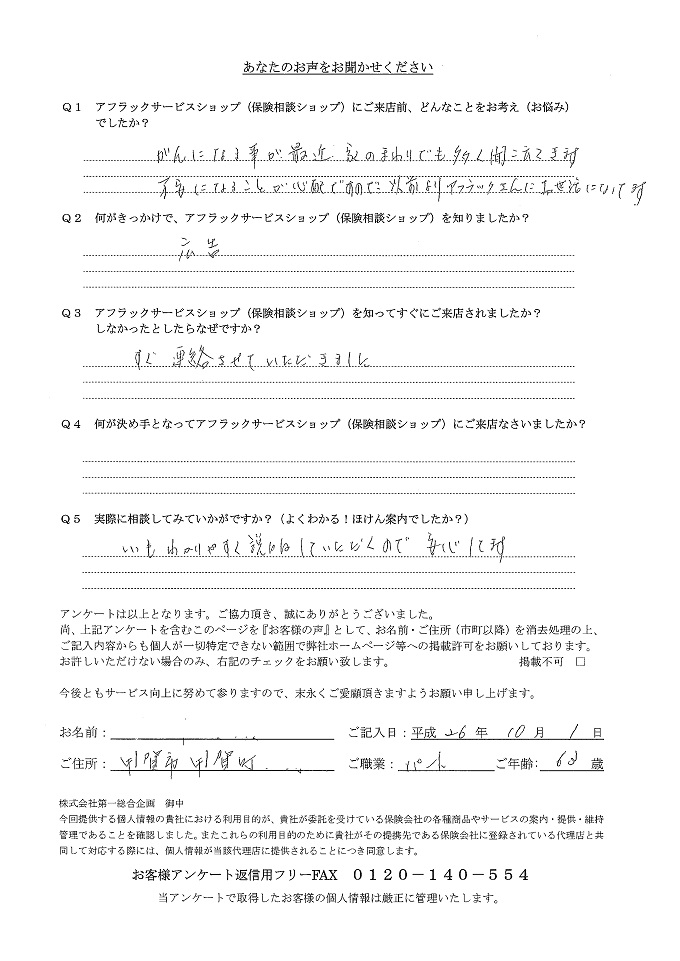 あなたのお声をお聞かせください
Q1 アフラックサービスショップ（保険相談ショップ）にご来店前、どんなことをお考え（お悩み）
でしたか？
がんになる事が最近 私のまわりでも多く聞こえてきます
になることが心配ですので 以前よりアフラックさんにお世話になってます
Q2 何がきっかけで、アフラックサービスショップ（保険相談ショップ）を知りましたか？
広告
Q3 アフラックサービスショップ（保険相談ショップ）を知ってすぐにご来店されましたか？
しなかったとしたらなぜですか？
すぐ 連絡させていただきました
Q4 何が決め手となってアフラックサービスショップ（保険相談ショップ）にご来店なさいましたか？
Q5 実際に相談してみていかがですか？（よくわかる！ほけん案内でしたか？）
いつも わかりやすく説明していただくので 安心してます
アンケートは以上となります。ご協力頂き、誠にありがとうございました。
尚、上記アンケートを含むこのページを『お客様の声』として、お名前・ご住所（市町以降）を消去処理の上、
ご記入内容からも個人が一切特定できない範囲で弊社ホームページ等への掲載許可をお願いしております。
お許しいただけない場合のみ、右記のチェックをお願い致します。 掲載不可 □
今後ともサービス向上に努めて参りますので、末永くご愛顧頂きますようお願い申し上げます。
お名前： ご記入日：平成 26 年 10 月 1 日
ご住所： 甲賀市 甲賀町 ご職業： パート ご年齢： 63 歳
株式会社第一総合企画 御中
今回提供する個人情報の貴社における利用目的が、貴社が委託を受けている保険会社の各種商品やサービスの案内・提供・維持
管理であることを確認しました。またこれらの利用目的のために貴社がその提携先である保険会社に登録されている代理店と共
同して対応する際には、個人情報が当該代理店に提供されることにつき同意します。
お客様アンケート返信用フリーFAX 0120－140－554
当アンケートで取得したお客様の個人情報は厳正に管理いたします。